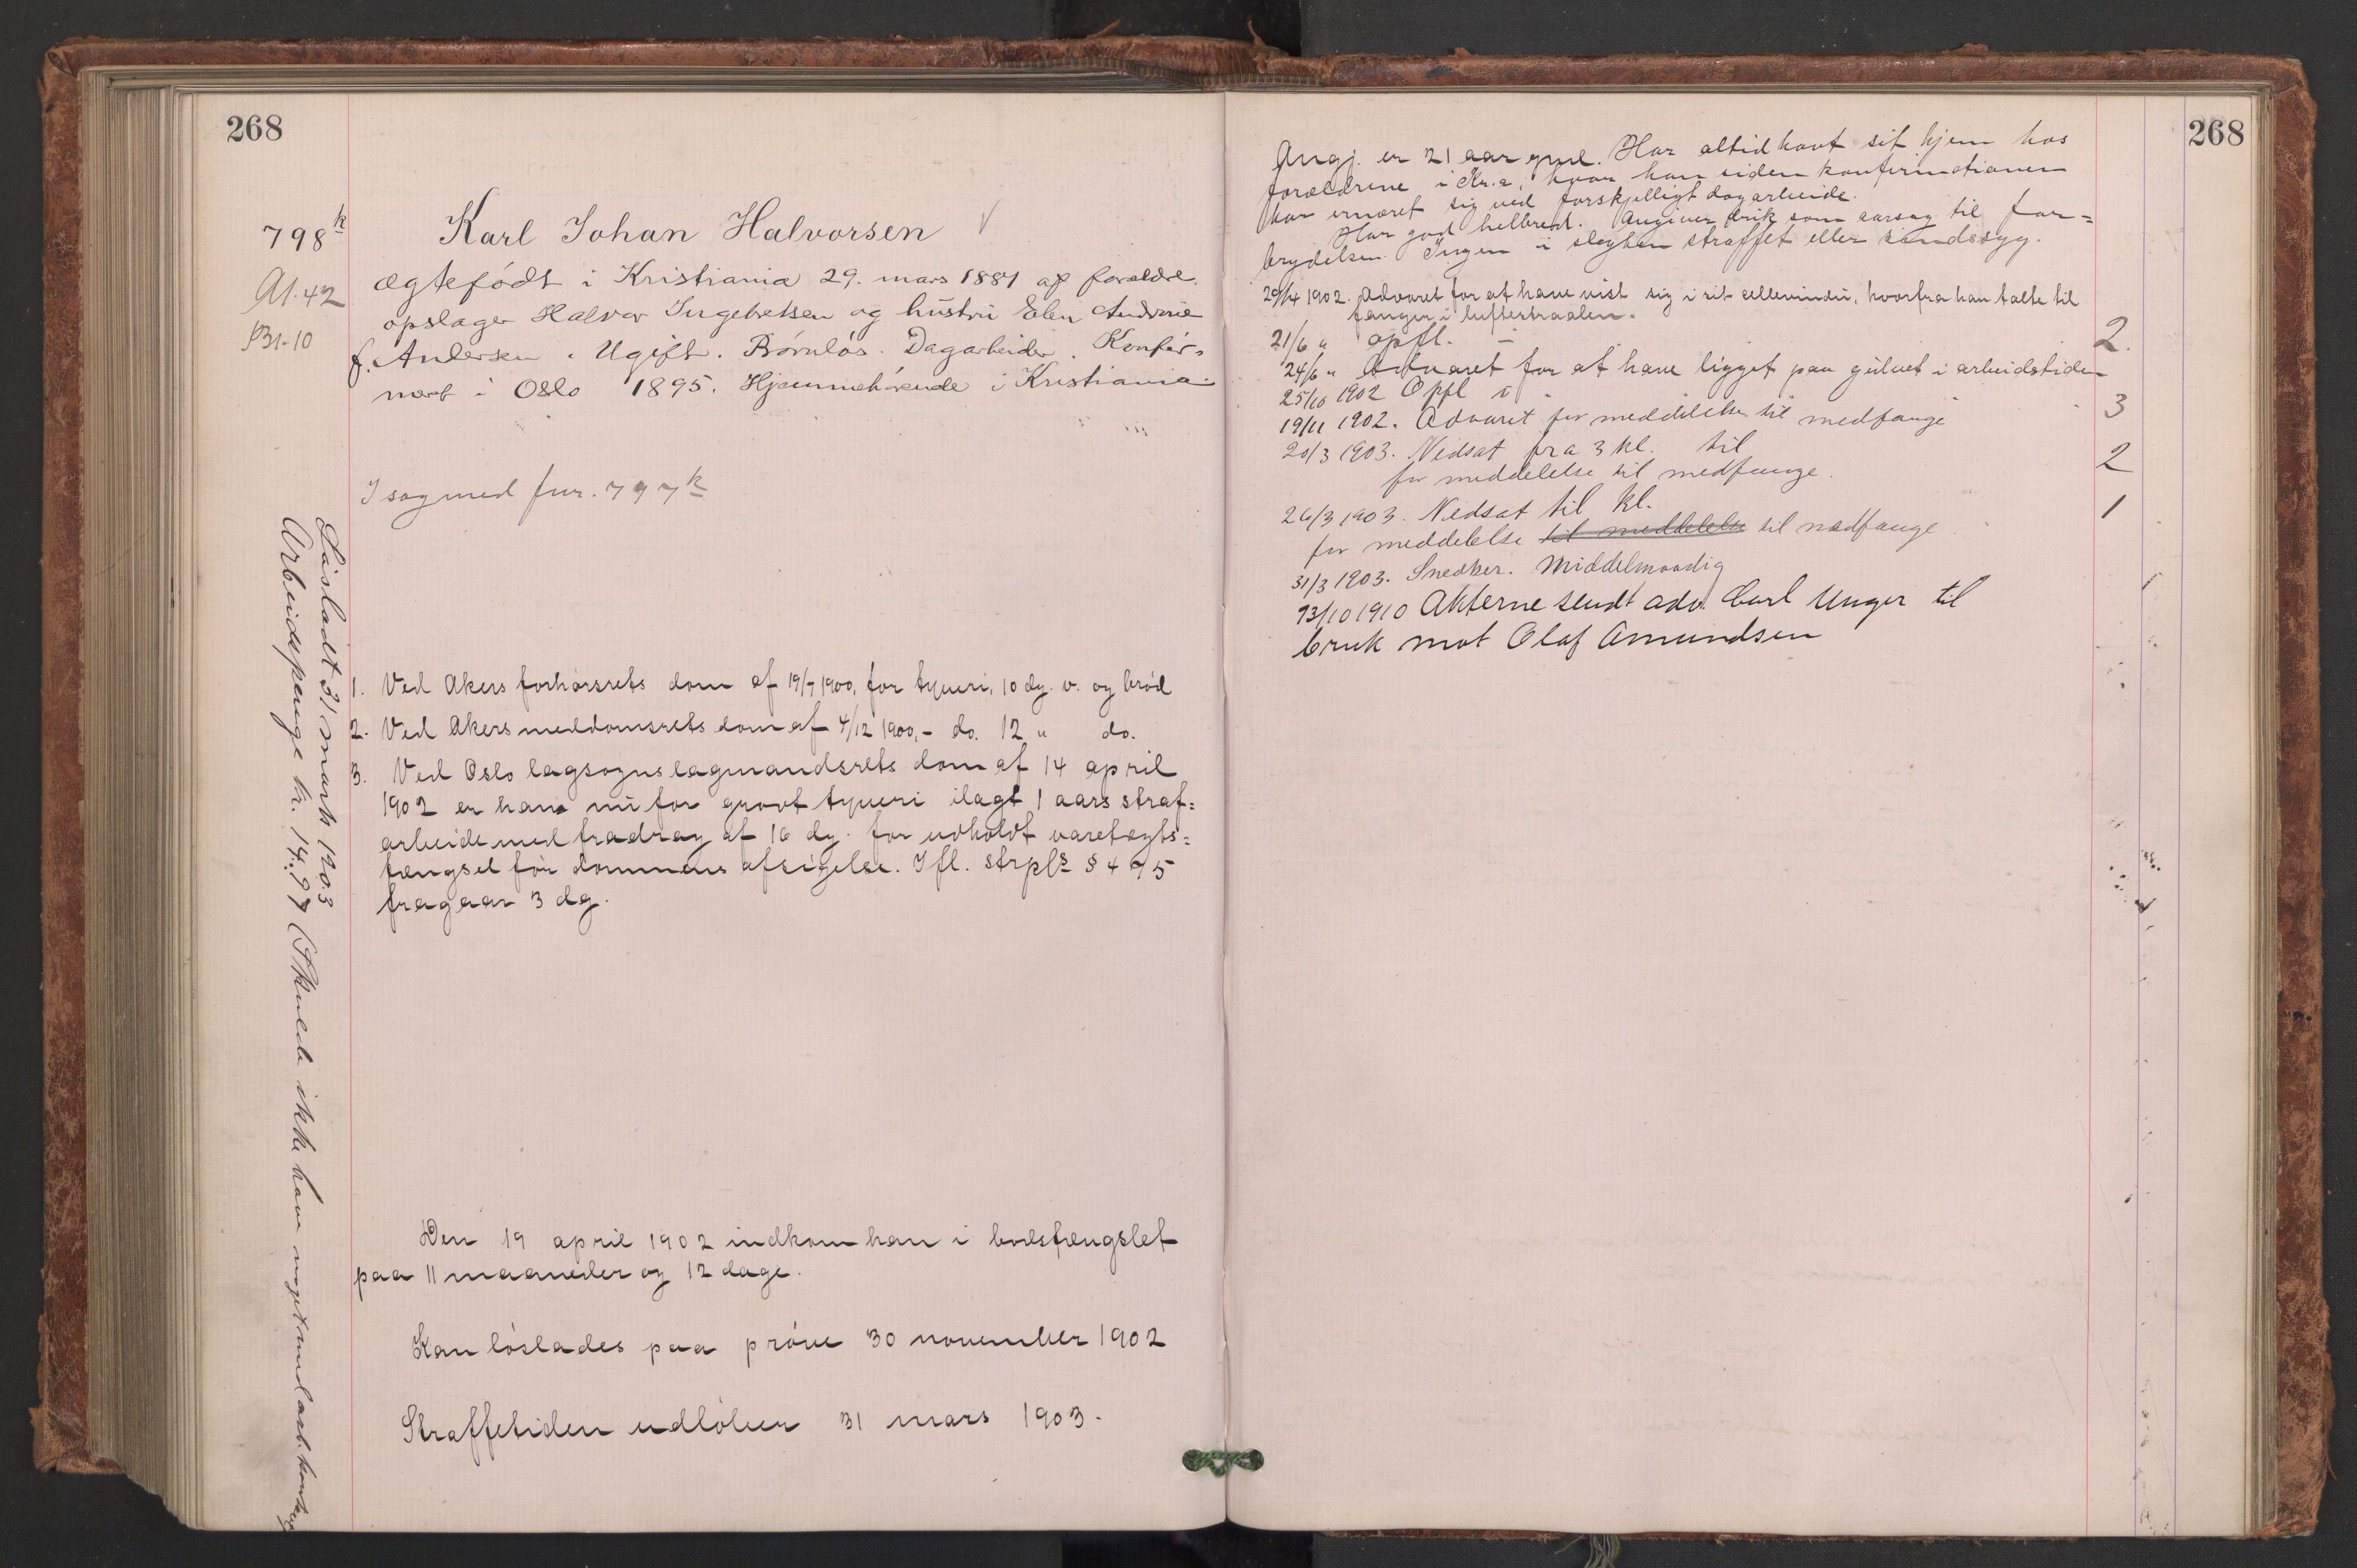 268
798 k
A1.42
B1-10
Karl Johan Halvorsen
ægtefødt i Kristiania 29. mars 1881 af forældre
opslager Halvor Ingebretsen og hustru Elen Andrine
f. Andersen. Ugift. Børnløs. Dagarbeider. Konfir=
meret i Oslo 1895. Hjemmehørende i Kristiania.
I sag med fnr. 797 k
1. Ved Akers forhørsrets dom af 19/7 1900, for tyveri, 10 dg. v. og brød
2. Ved Akers meddomsrets dom af 4/12 1900, - do. 12 " do.
3. Ved Oslo lagsogns lagmandsrets dom af 14 april
1902 er han nu for grovt tyveri ilagt 1 aars straf=
arbeide med fradrag af 16 dg. for udholdt varetægts=
fængsel før dommens afsigelse. Ifl. strpls § 475
fragaar 3 dg.
Den 19 april 1902 indkom han i bodsfængslet
paa 11 maaneder og 12 dage.
Kan løslades paa prøve 30 november 1902
Straffetiden udløber 31 mars 1903.
Løsladt 31 marts 1903
Arbeidspenge kr. 14.97 (Skulde ikke have noget
268
Angj. er 21 aar gml. Har altid havt sit hjem hos
forældrene i Kr.a, hvor han siden konfirmationen
har ernæret sig ved forskjelligt dagarbeide.
Har god helbred. Angiver drik som aarsag til for=
brydelsen. Ingen i slegten straffet eller sindssyg.
29/4 1902. Advaret for at have vist sig i sit cellevindu, hvorfra han talte til
fanger i luftestraalen.
21/6 " opfl. - 2.
24/6 " Advaret for at have ligget paa gulvet i arbeidstiden
25/10 1902 Opfl i 3
19/11 1902. Advaret for meddelelse til medfange
20/3 1903. Nedsat fra 3 kl. til 2
for meddelelse til medfange.
26/3 1903. Nedsat til kl. 1
for meddelelse til meddelelse til medfange
31/3 1903. Snedker. Middelmaadig
13/10 1910 Akterne sendt adv. Carl Unger til
bruk mot Olaf Amundsen